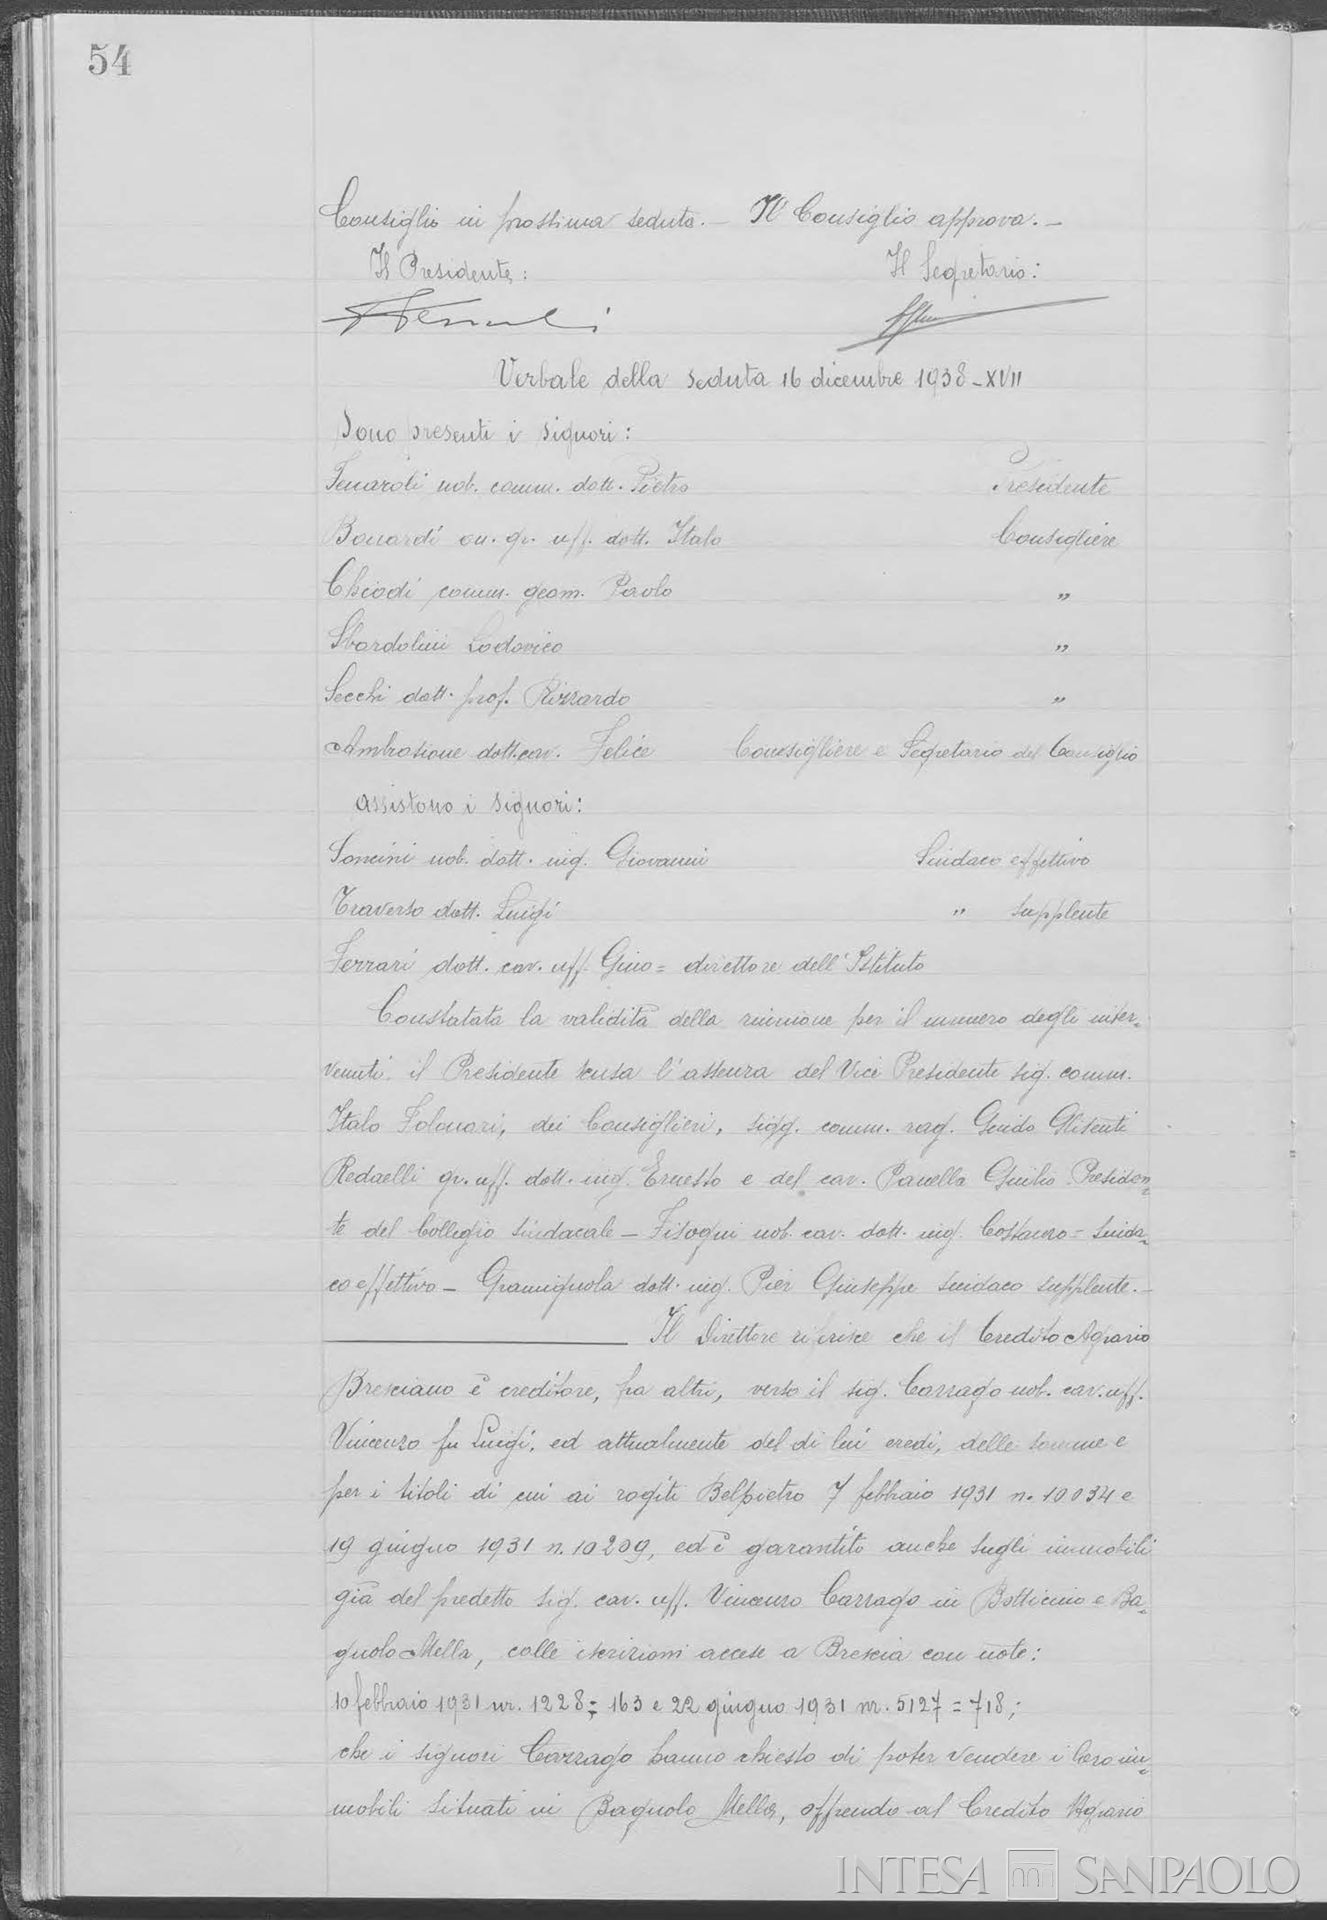 54
Consiglio in prossima seduta. — Il Consiglio approva. —
Il Presidente: Il Segretario:
Verbale della seduta 16 dicembre 1938 - XVII
Sono presenti i signori:
Fenaroli nob. comm. dott. Pietro Presidente
Bonardi on. gr. uff. dott. Italo Consigliere
Chiodi comm. geom. Paolo "
Sbardolini Lodovico "
Secchi dott. prof. Rizzardo "
Ambrosione dott. cav. Felice Consigliere e Segretario del Consiglio
assistono i signori:
Soncini nob. dott. ing. Giovanni Sindaco effettivo
Traverso dott. Luigi " supplente
Ferrari dott. cav. uff. Gino = direttore dell'Istituto
Constatata la validità della riunione per il numero degli inter-
venuti, il Presidente scusa l'assenza del Vice Presidente sig. comm.
Italo Folonari, dei Consiglieri, sigg. comm. rag. Guido Glisenti
Redaelli gr. uff. dott. ing. Ernesto e del cav. Panella Giulio Presiden-
te del Collegio Sindacale — Fisogni nob. cav. dott. ing. = Sinda-
co effettivo — Gramignola dott. ing. Pier Giuseppe sindaco supplente. —
Il Direttore riferisce che il Credito Agrario
Bresciano è creditore, fra altri, verso il sig. Cazzago nob. cav. uff.
Vincenzo fu Luigi, ed attualmente del di lui eredi, delle somme e
per i titoli di cui ai rogiti Belpietro 7 febbraio 1931 n. 10034 e
19 giugno 1931 n. 10209, ed è garantito anche sugli immobili
già del predetto sig. cav. uff. Vincenzo Cazzago in Botticino e Ba-
gnolo Mella, colle iscrizioni accese a Brescia con note:
10 febbraio 1931 nr. 1228 = 163 e 22 giugno 1931 nr. 5127 = 718;
che i signori Cazzago hanno chiesto di poter vendere i loro im-
mobili situati in Bagnolo Mella, offrendo al Credito Agrario
INTESA SANPAOLO